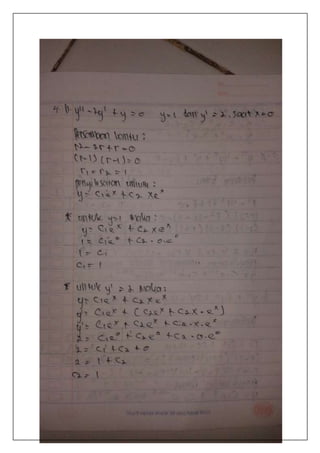 4. b. y'' - 2y' + y = 0 y = 1 dan y' = 2. saat x = 0
Persamaan bantu :
r² - 2r + r = 0
(r-1) (r-1) = 0
r₁ = r₂ = 1
penyelesaian umum :
y = C₁eˣ + C₂ xeˣ
* untuk y=1 maka :
y = C₁eˣ + C₂ x eˣ
1 = C₁e⁰ + C₂ . 0 . e⁰
1 = C₁
C₁ = 1
* untuk y' = 2 maka :
y = C₁eˣ + C₂ x eˣ
y' = C₁eˣ + [C₂eˣ + C₂x . eˣ]
y' = C₁eˣ + C₂eˣ + C₂ . x . eˣ
2 = C₁e⁰ + C₂e⁰ + C₂ . 0 . e⁰
2 = C₁ + C₂ + 0
2 = 1 + C₂
C₂ = 1